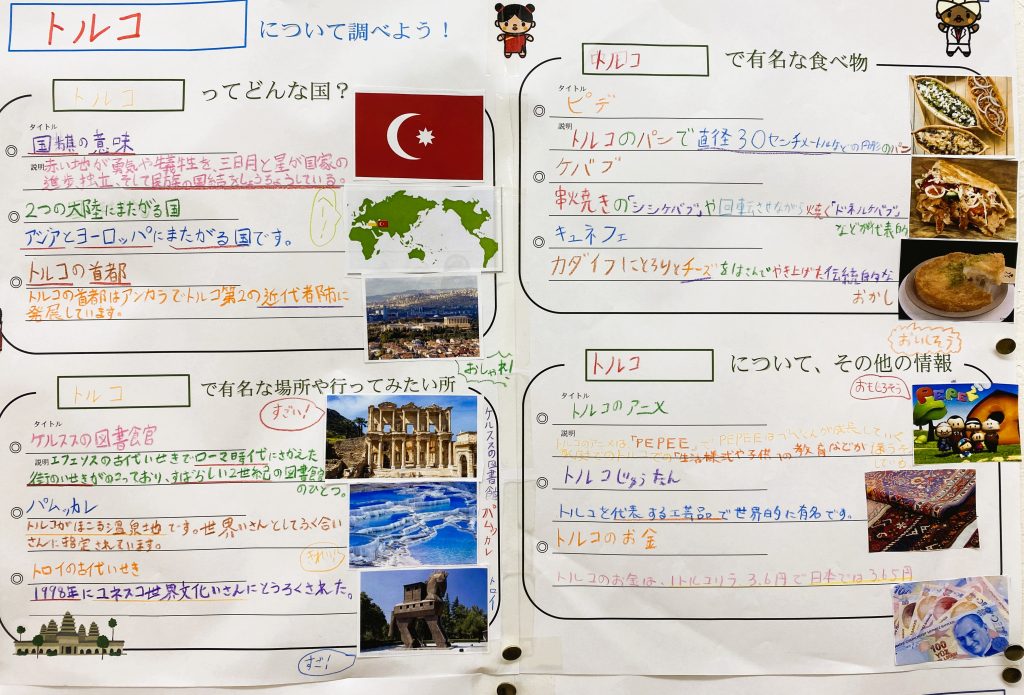 トルコ について調べよう！
トルコ ってどんな国？
タイトル
国旗の意味
説明 赤い地が勇気や犠牲を、三日月と星が国家の
進歩、独立、そして民族の団結をしょうちょうしている。
2つの大陸にまたがる国
アジアとヨーロッパにまたがる国です。
トルコの首都
トルコの首都はアンカラでトルコ第2の近代都市に
発展しています。
トルコ で有名な場所や行ってみたい所
おしゃれ！
すごい！
タイトル
ケルススの図書館
説明 エフェソスの古代いせきでローマ時代にさかえた
街のいせきがのこっており、すばらしい2世紀の図書館
のひとつ。
パムッカレ
トルコがほこる温泉地です。世界いさんとしてふく合い
さんに指定されています。
きれい！
トロイの古代いせき
1998年にユネスコ世界文化いさんにとうろくされた。
すご！
ケルススの図書館
パムッカレ
トロイ
トルコ で有名な食べ物
タイトル
ピデ
説明
トルコのパンで直径30センチメートルほどの円形のパン
ケバブ
串焼きの「シシケバブ」や回転させながら焼く「ドネルケバブ」
などが代表的
キュネフェ
カダイフにとろりとチーズをはさんでやき上げた伝統的な
おかし
おいしそう
トルコ について、その他の情報
おもしろそう
タイトル
トルコのアニメ
説明
トルコのアニメは「PEPEE」で PEPEEは
「生活様式や子供」の教育などが
PEPEE
トルコじゅうたん
トルコを代表する工芸品で世界的に有名です。
トルコのお金
トルコのお金は、1トルコリラ 3.6円で日本では3.65円
100
YÜZ